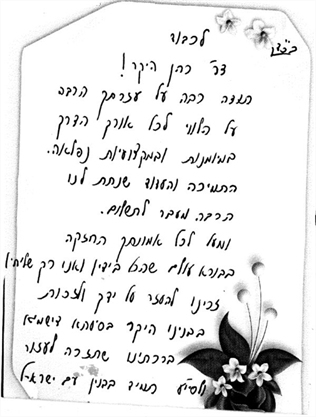 בס"ד
לכבוד
דר' כהן היקר!
תודה רבה על עזרתך הרבה
על הלווי לכל אורך הדרך
במיומנות ובמקצועיות נפלאה.
התמיכה והעדוד שנתת לנו
הרבה מעבר לתשלום.
ומעל לכל אמונתך החזקה
בבורא עולם שהכל בידיו ואנו רק שליחיו
זכינו להעזר על ידך ולזכות
בבנינו היקר בסיעתא דישמיא
ברכתינו שתזכה לעזור
ולסייע תמיד בבנין עם ישראל